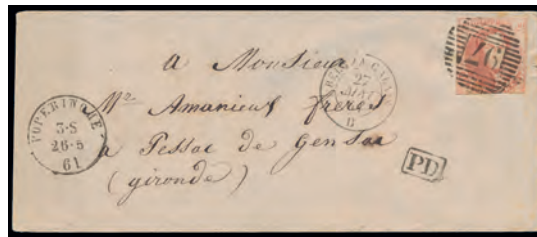 a Monsieur
Mr Amanieux frères
a Pessac de Gensac
(gironde)
POPERINGHE
3·S
26·5
61
27
B
PD